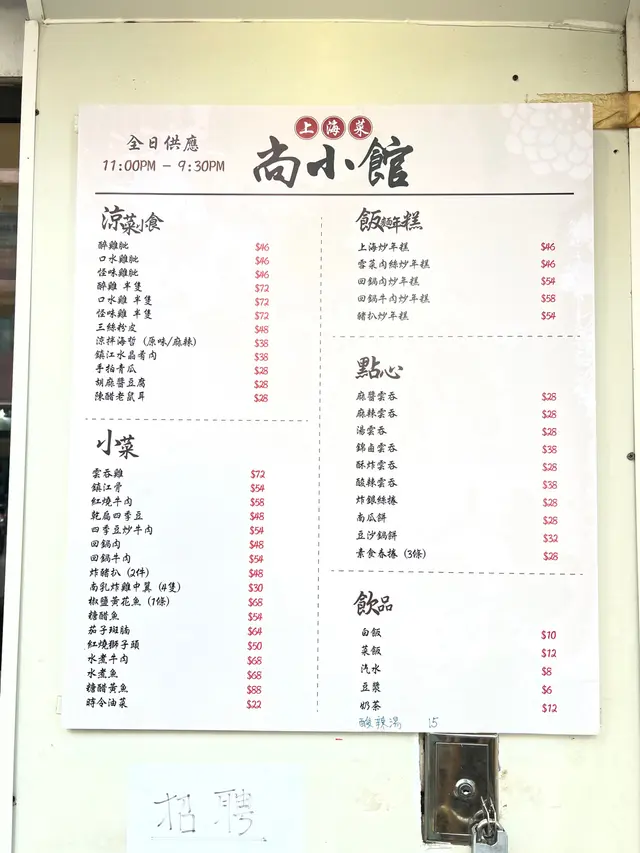 上海菜
尚小館
全日供應
11:00PM - 9:30PM
涼菜小食
醉雞髀 $46
口水雞髀 $46
怪味雞髀 $46
醉雞 半隻 $72
口水雞 半隻 $72
怪味雞 半隻 $72
三絲粉皮 $48
涼拌海哲 (原味/麻辣) $38
鎮江水晶肴肉 $38
手拍青瓜 $28
胡麻醬豆腐 $28
陳醋老鼠耳 $28
小菜
雲吞雞 $72
鎮江骨 $54
紅燒牛肉 $58
乾扁四季豆 $48
四季豆炒牛肉 $54
回鍋肉 $48
回鍋牛肉 $54
炸豬扒 (2件) $48
南乳炸雞中翼 (4隻) $30
椒鹽黃花魚 (1條) $68
糖醋魚 $54
茄子斑腩 $64
紅燒獅子頭 $50
水煮牛肉 $68
水煮魚 $68
糖醋黃魚 $88
時令油菜 $22
飯麵年糕
上海炒年糕 $46
雪菜肉絲炒年糕 $46
回鍋肉炒年糕 $54
回鍋牛肉炒年糕 $58
豬扒炒年糕 $54
點心
麻醬雲吞 $28
麻辣雲吞 $28
湯雲吞 $28
錦鹵雲吞 $38
酥炸雲吞 $28
酸辣雲吞 $38
炸銀絲捲 $28
南瓜餅 $28
豆沙鍋餅 $32
素食春捲 (3條) $28
飲品
白飯 $10
菜飯 $12
汽水 $8
豆漿 $6
奶茶 $12
酸辣湯 15
招聘